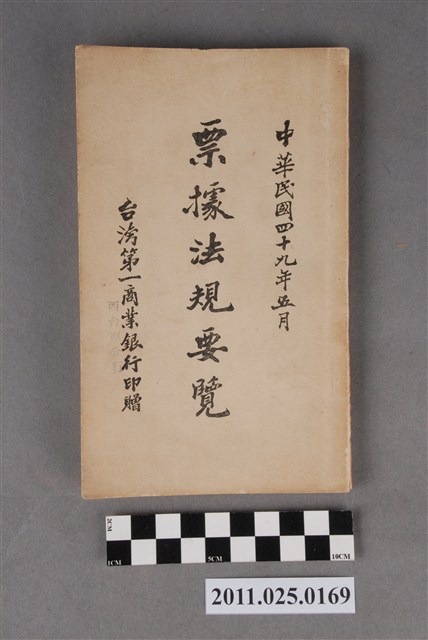 中華民國四十九年五月
票據法規要覽
台湾第一商業銀行印贈
2CM
1CM
5CM
10CM
2011.025.0169